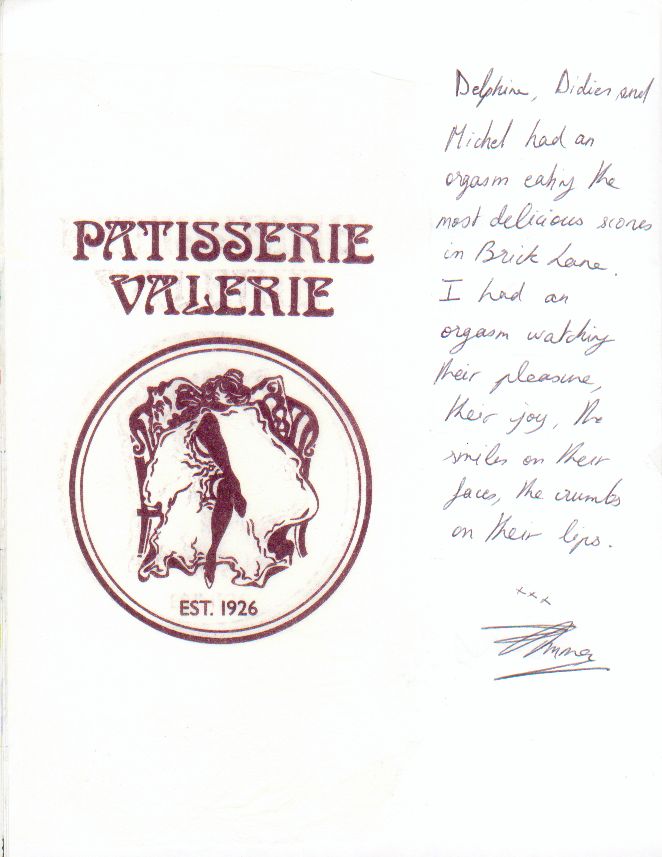 PATISSERIE
VALERIE
EST. 1926
Delphine, Didier and
Michel had an
orgasm eating the
most delicious scones
in Brick Lane.
I had an
orgasm watching
their pleasure,
their joy, the
smiles on their
faces, the crumbs
on their lips.
xxx